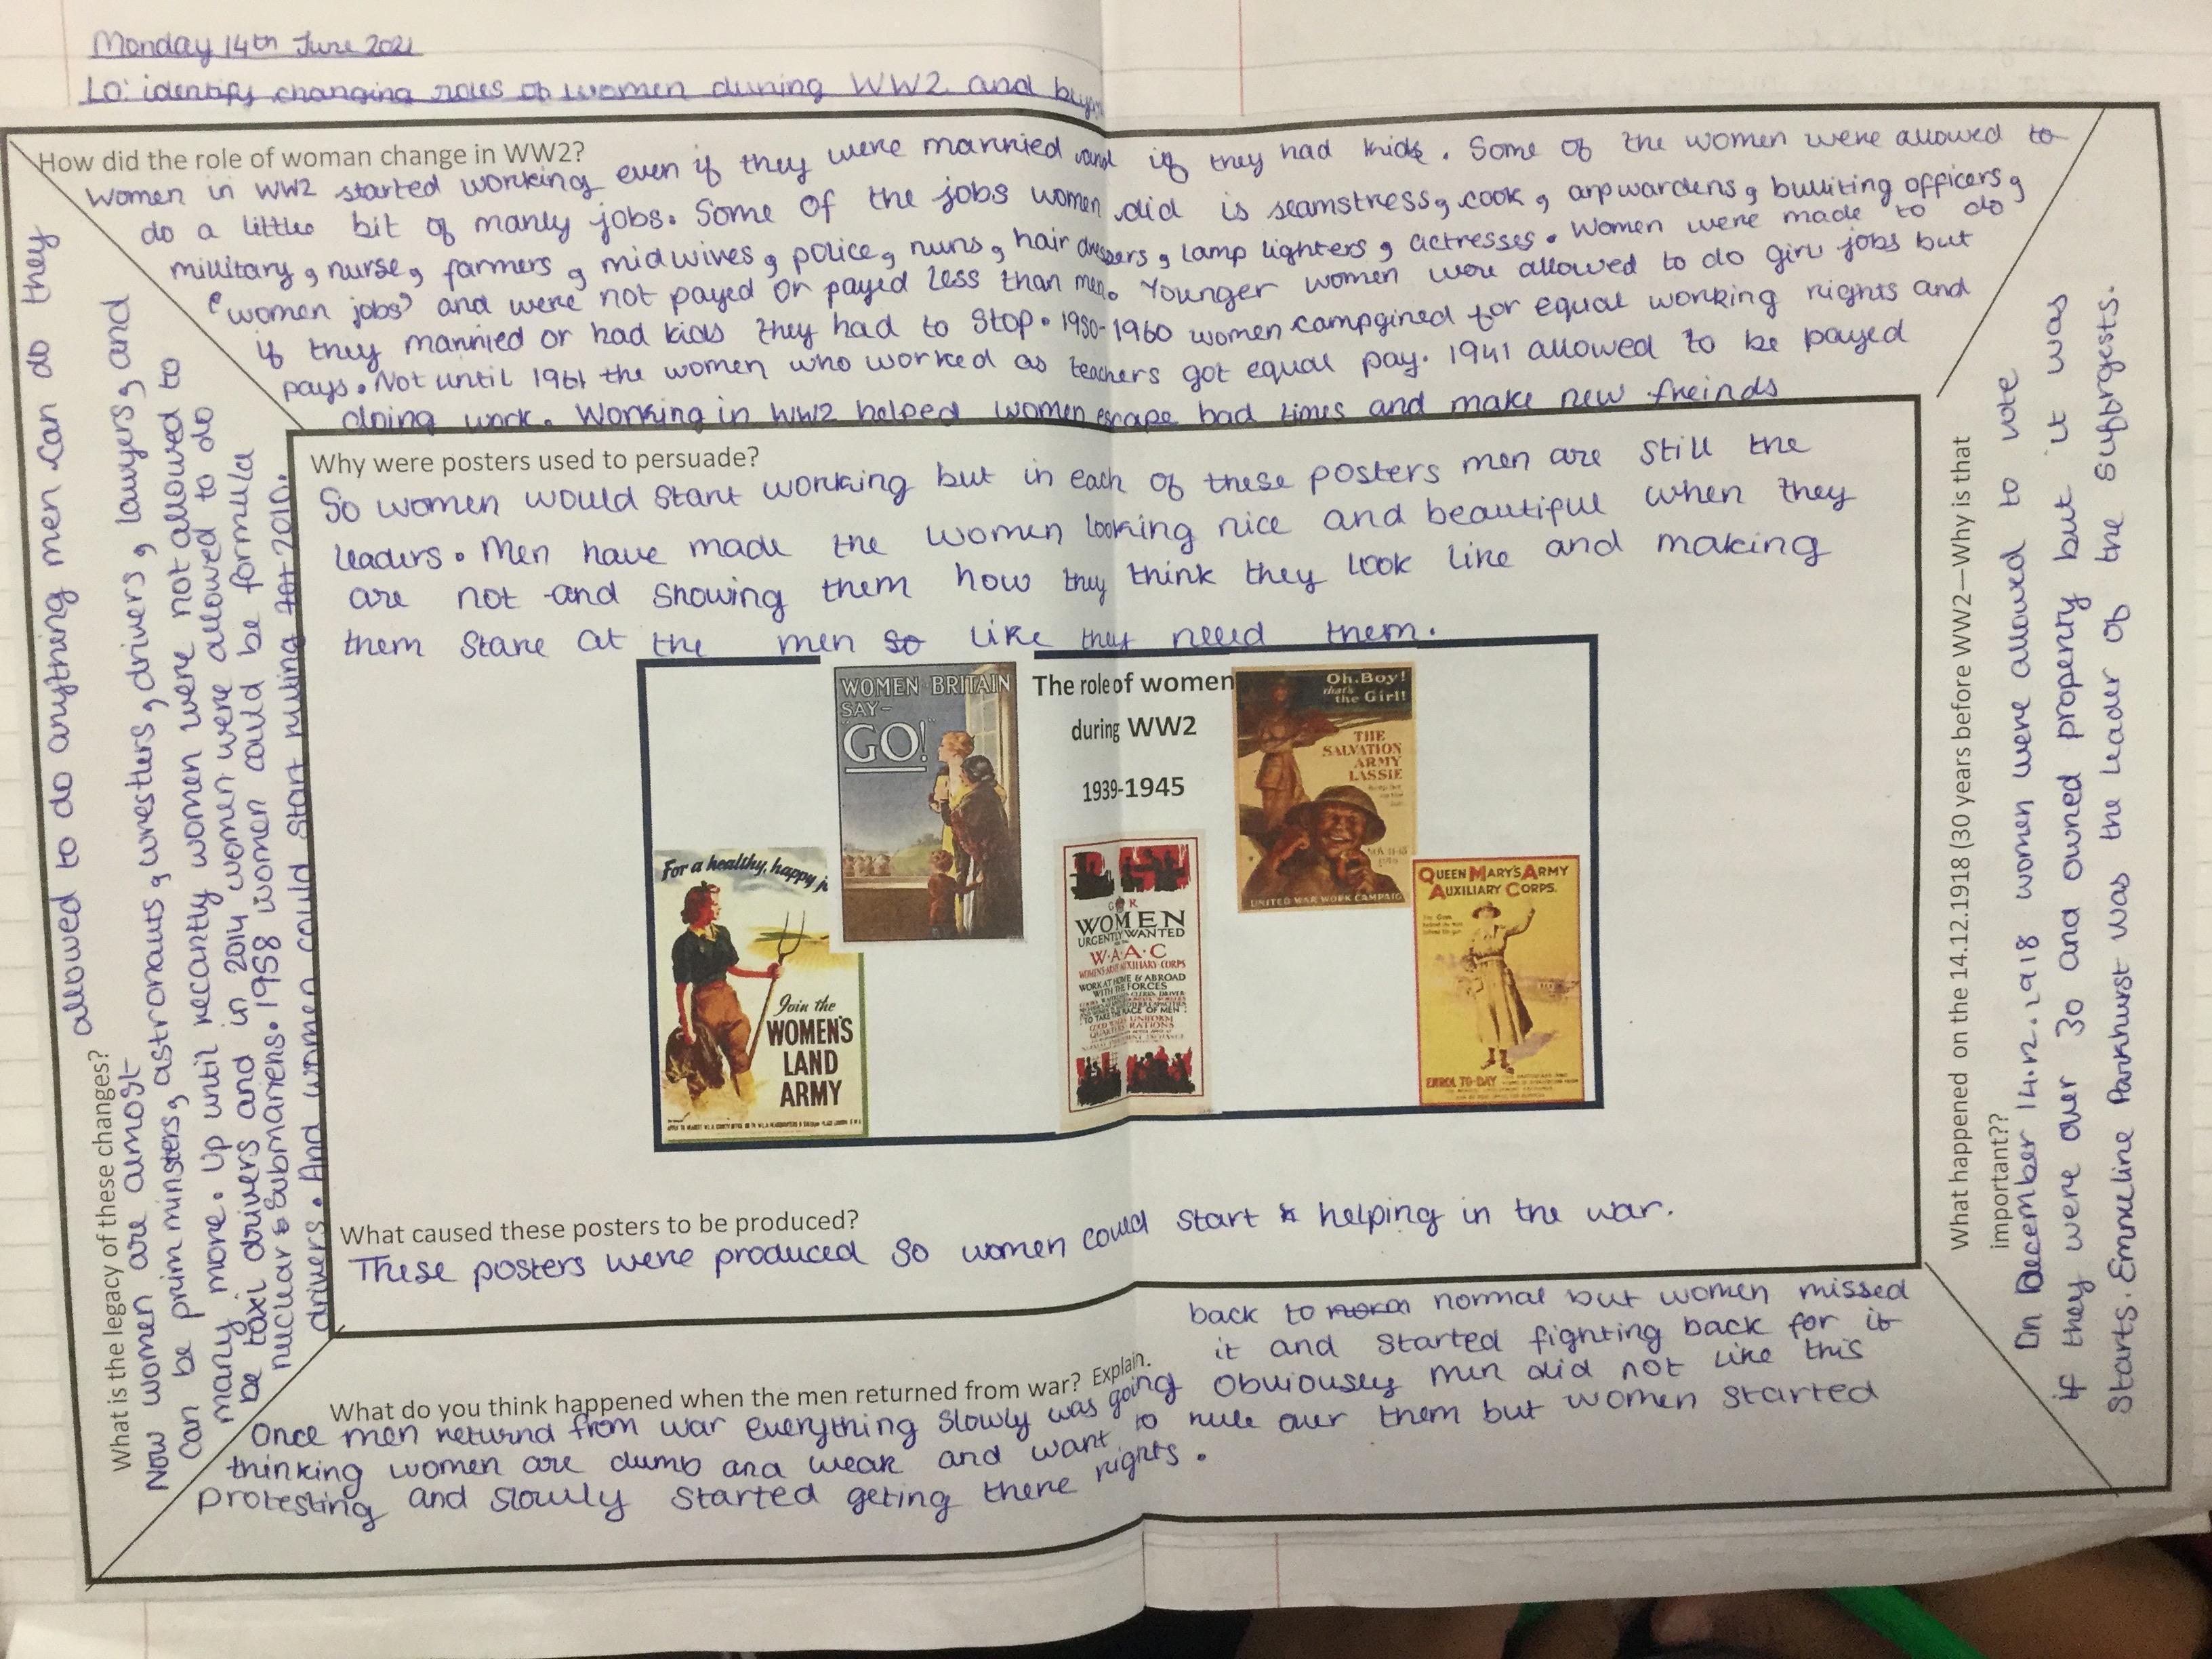 Monday 14th June 2021
LO: identify changing roles of women during WW2 and beyon
How did the role of woman change in WW2?
Women in WW2 started working even if they were married and if they had kids. Some of the women were allowed to
do a little bit of manly jobs. Some of the jobs women did is seamstress, cook, arpwardens, bulliting officers,
millitary, nurse, farmers, midwives, police, nuns, hair dressers, lamp lighters, actresses. Women were made to do
"women jobs" and were not payed or payed less than men. Younger women were allowed to do girl jobs but
if they married or had kids they had to stop. 1950-1960 women campgined for equal working rights and
pays. Not until 1961 the women who worked as teachers got equal pay. 1941 allowed to be payed
doing work. Working in WW2 helped women escape bad times and make new freinds
Why were posters used to persuade?
So women would start working but in each of these posters men are still the
leaders. Men have made the women looking nice and beautiful when they
are not and showing them how they think they look like and making
them stare at the men so like they need them.
WOMEN OF BRITAIN
SAY-
"GO!"
The role of women
during WW2
1939-1945
Oh, Boy!
that's
the Girl!
THE
SALVATION
ARMY
LASSIE
UNITED WAR WORK CAMPAIGN
For a healthy, happy j
Join the
WOMEN'S
LAND
ARMY
G R
WOMEN
URGENTLY WANTED
W·A·A·C
WOMEN'S ARMY AUXILIARY CORPS
WORK AT HOME & ABROAD
WITH THE FORCES
QUEEN MARY'S ARMY
AUXILIARY CORPS.
ENROL TO-DAY
What caused these posters to be produced?
These posters were produced so women could start helping in the war.
What do you think happened when the men returned from war? Explain.
Once men returnd from war everything slowly was going
back to norm normal but women missed
it and started fighting back for it
Obviousley men did not like this
thinking women are dumb and weak and want to rule our them but women started
protesting and slowly started geting there rights.
What is the legacy of these changes?
Now women are almost allowed to do anything men can do they
can be prim minsters, astronauts, wrestlers, drivers, lawyers, and
many more. Up until recantly women were not allowed to
be taxi drivers and in 2014 women were allowed to do
nuclear submariens. 1958 women could be formula
drivers. And women could start ruling for 2010.
What happened on the 14.12.1918 (30 years before WW2—Why is that
important??
On December 14.12.1918 women were allowed to vote
if they were over 30 and owned property but it was
Starts. Emmeline Pankhurst was the leader of the suffrgests.